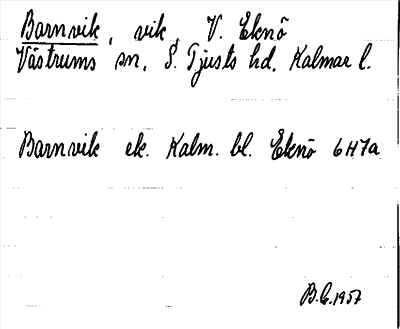 Barnvik, vik, V. Eknö
Västrums sn, S. Tjusts hd, Kalmar l.
Barnvik ek. Kalm. bl. Eknö 6H7a
B.G. 1957